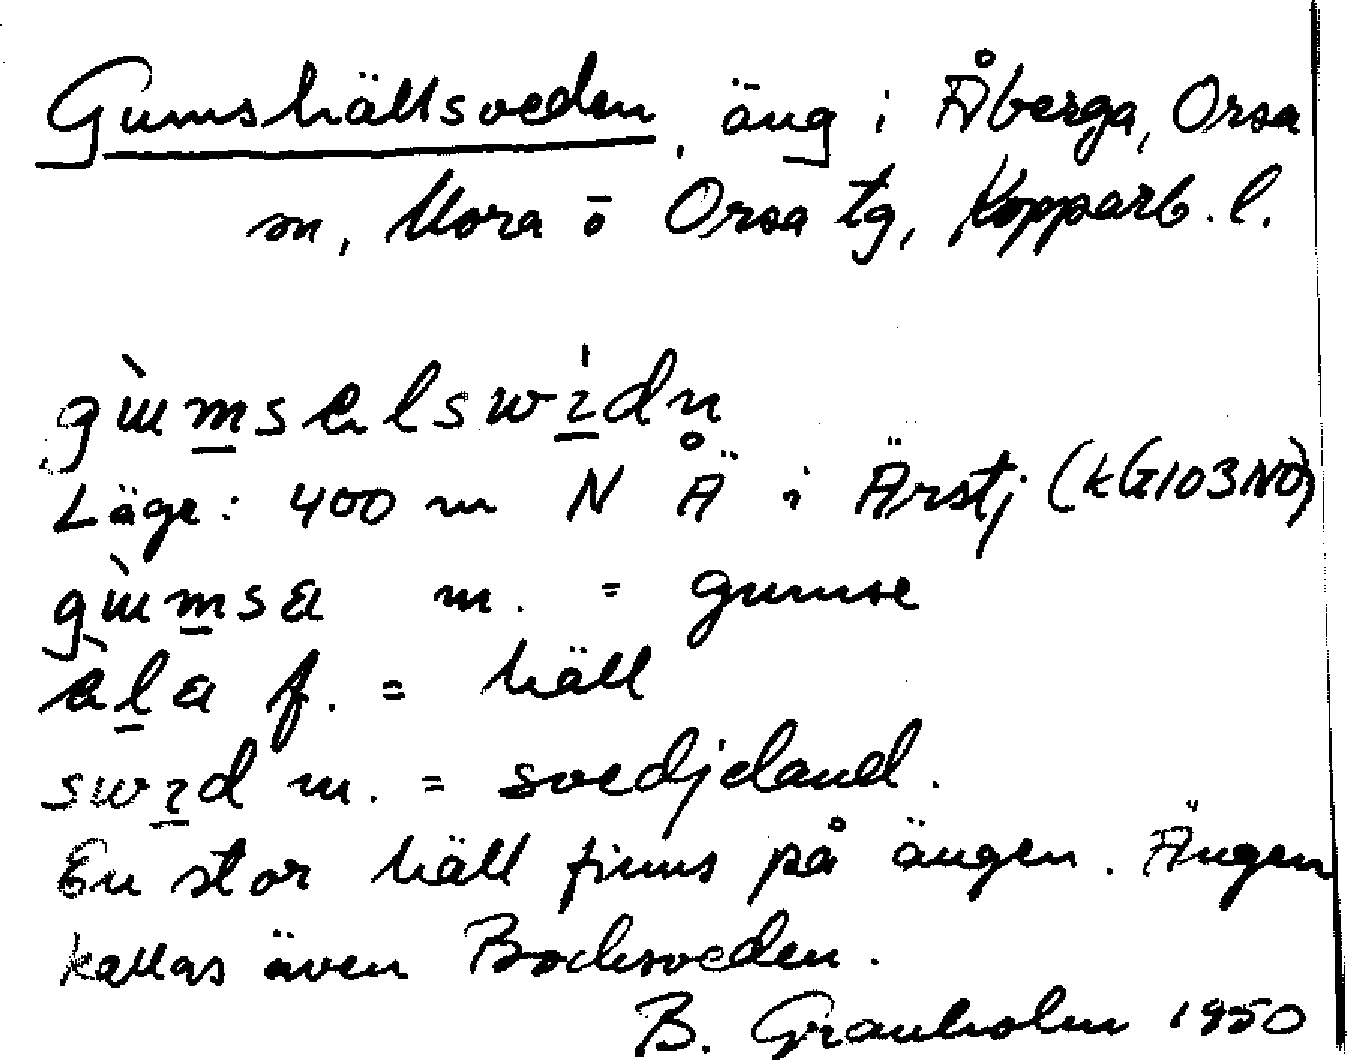 Gumshällsveden, äng i Åberga, Orsa
m, Mora o Orsa tg, Kopparb. l.
Läge: 400 m N Å i Ärstj (kG103NO)
m. = gumse
f. = häll
swıd m. = svedjeland.
En stor häll finns på ängen. Ängen
kallas även Bocksveden.
B. Granholm 1950